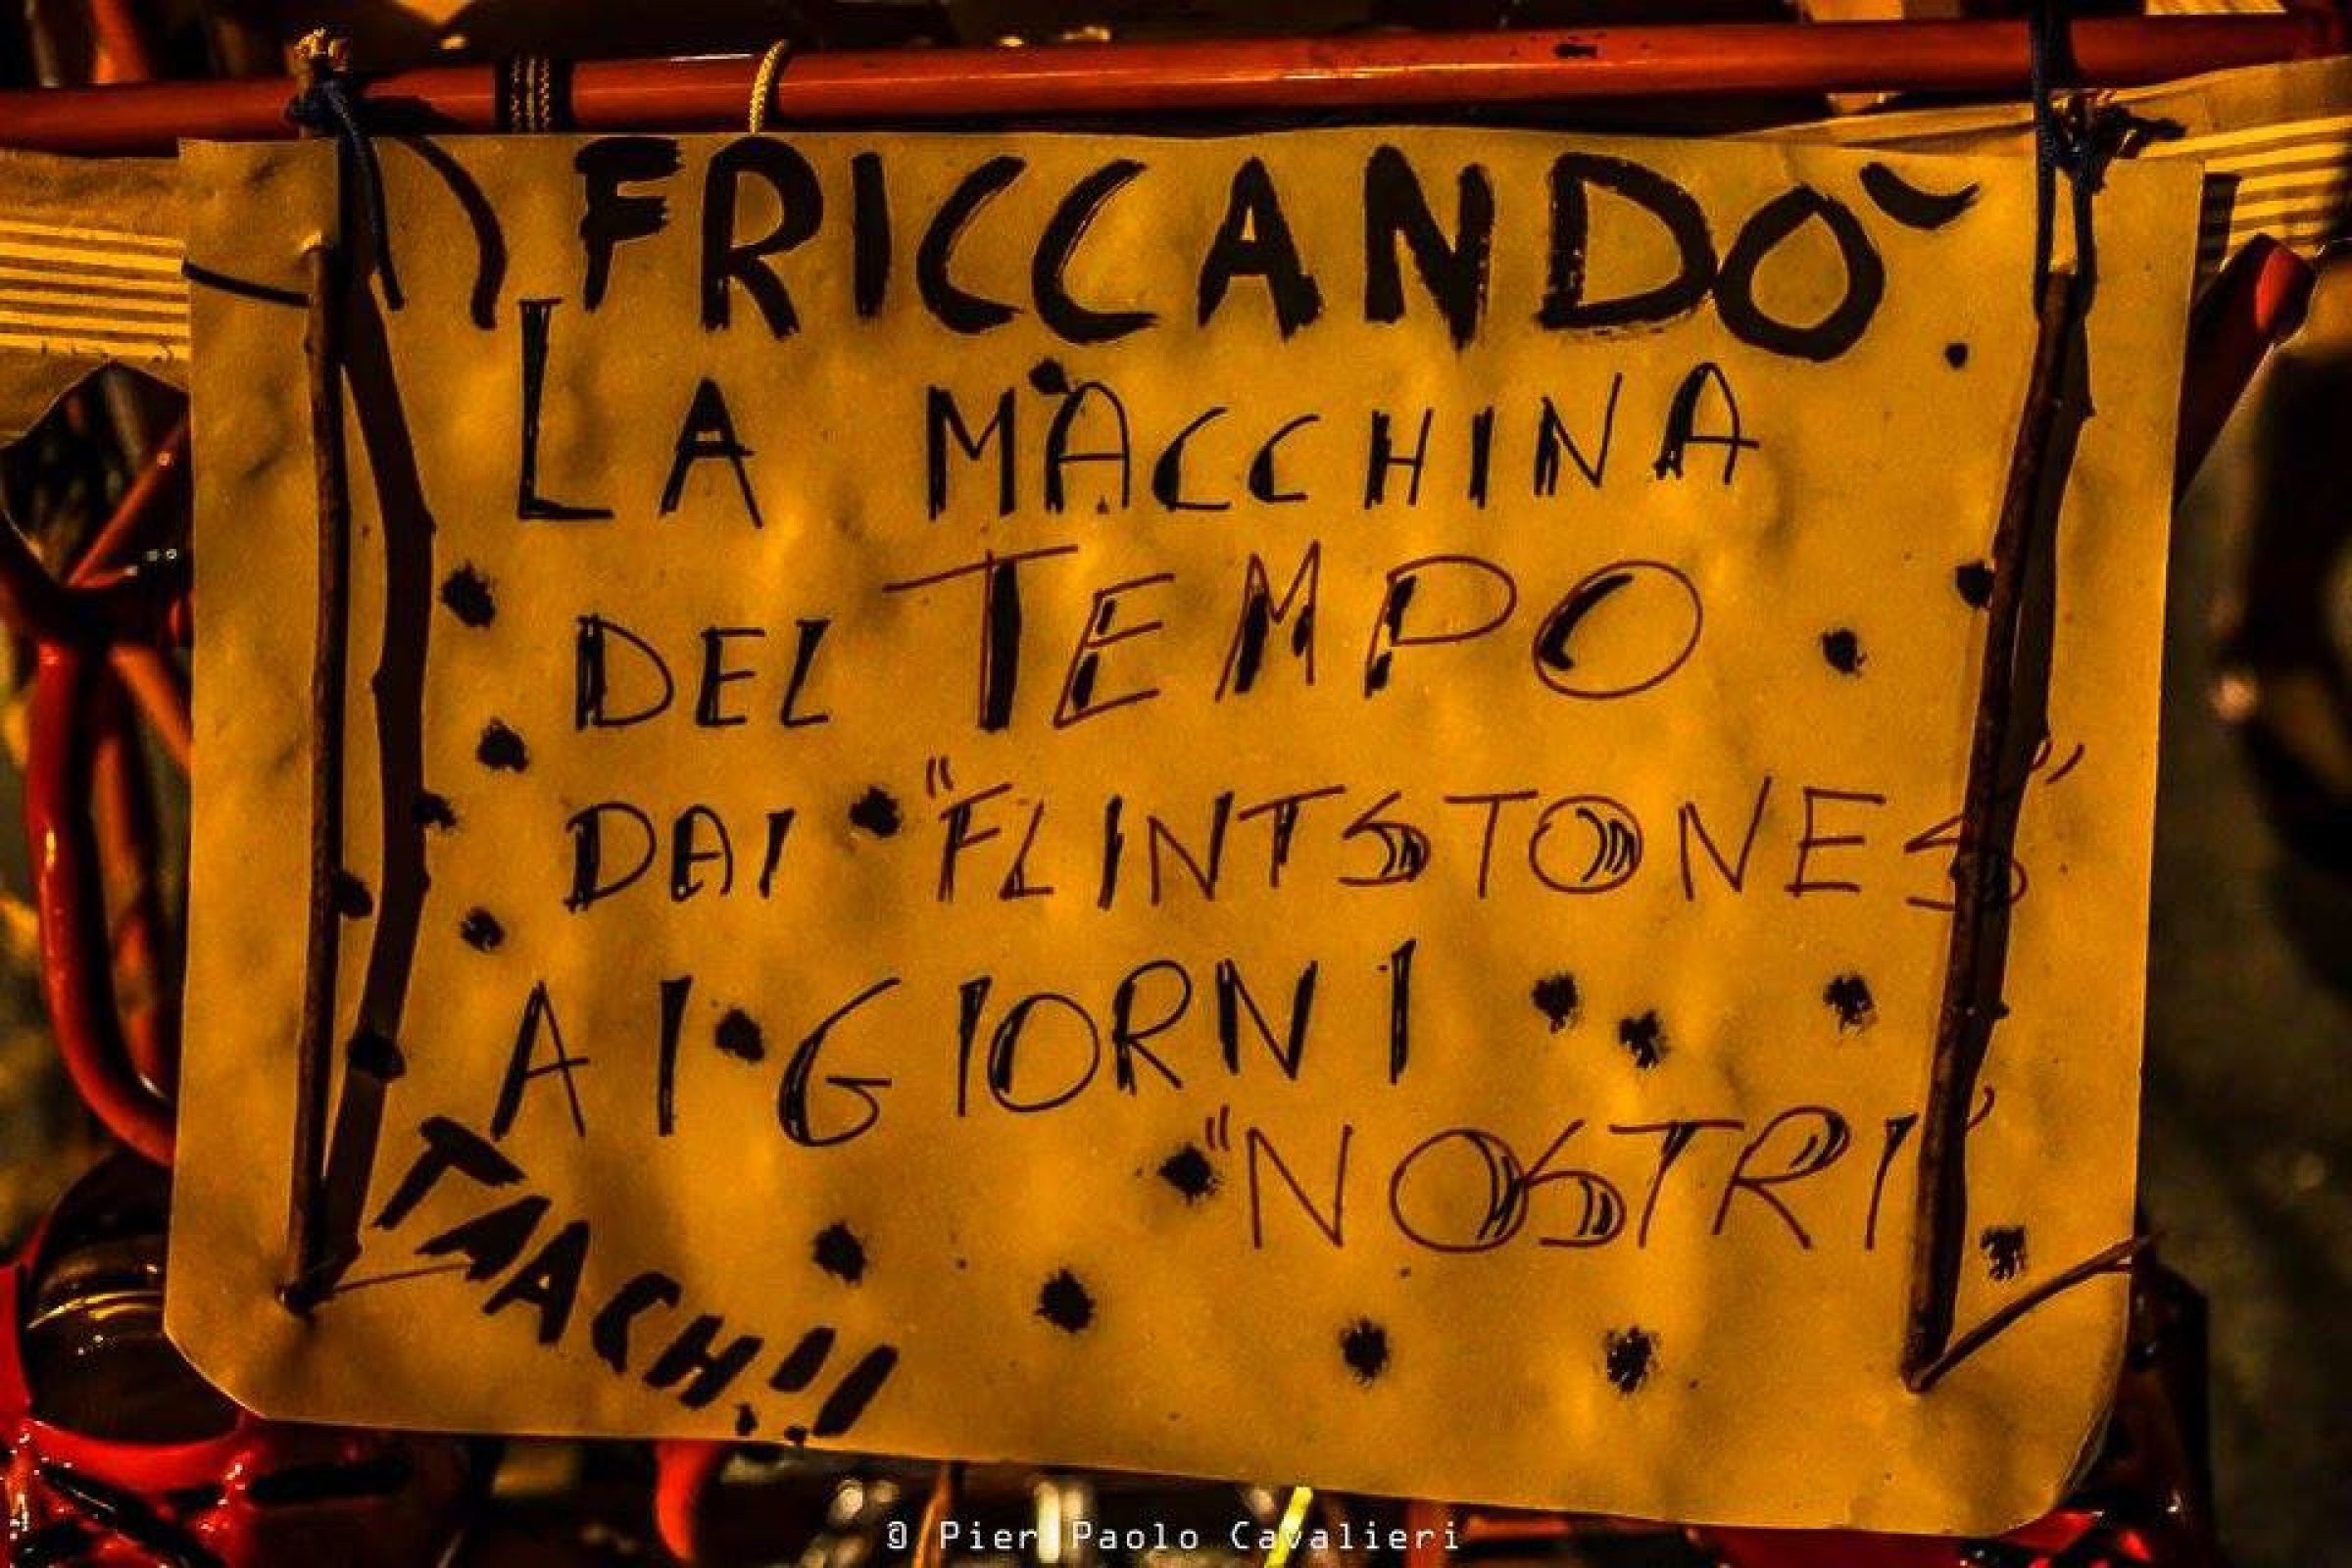 FRICCANDÒ
LA MACCHINA
DEL TEMPO
DAI "FLINTSTONES"
AI GIORNI
"NOSTRI"
TAACH!!
© Pier Paolo Cavalieri